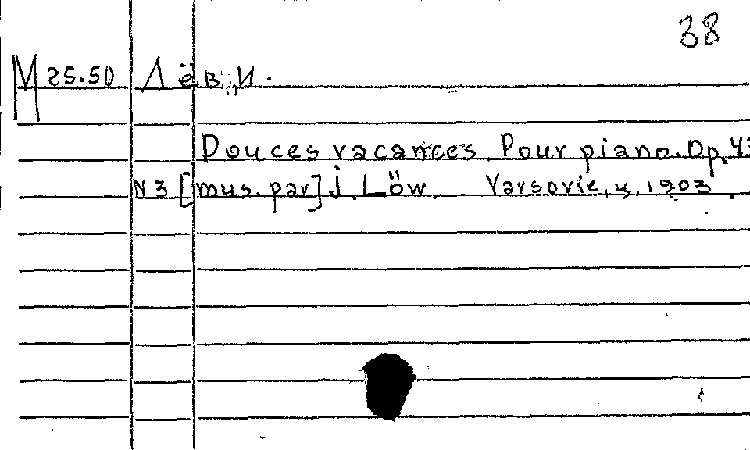 38
M 25.50 Лёв, И.
Douces vacances. Pour piano. Op. 43
N 3 [mus. par] J. Löw. Varsovie, 1903.